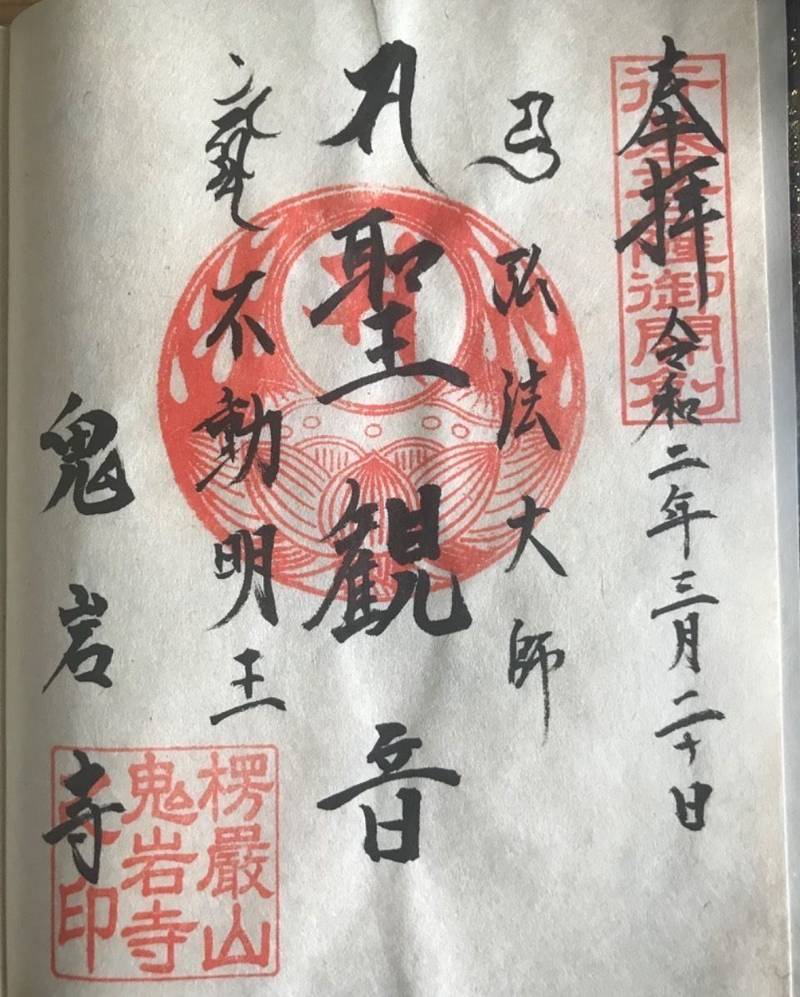 奉拝 令和二年三月二十日
弘法大師
聖観音
不動明王
鬼岩寺
楞厳山
鬼岩寺
之印